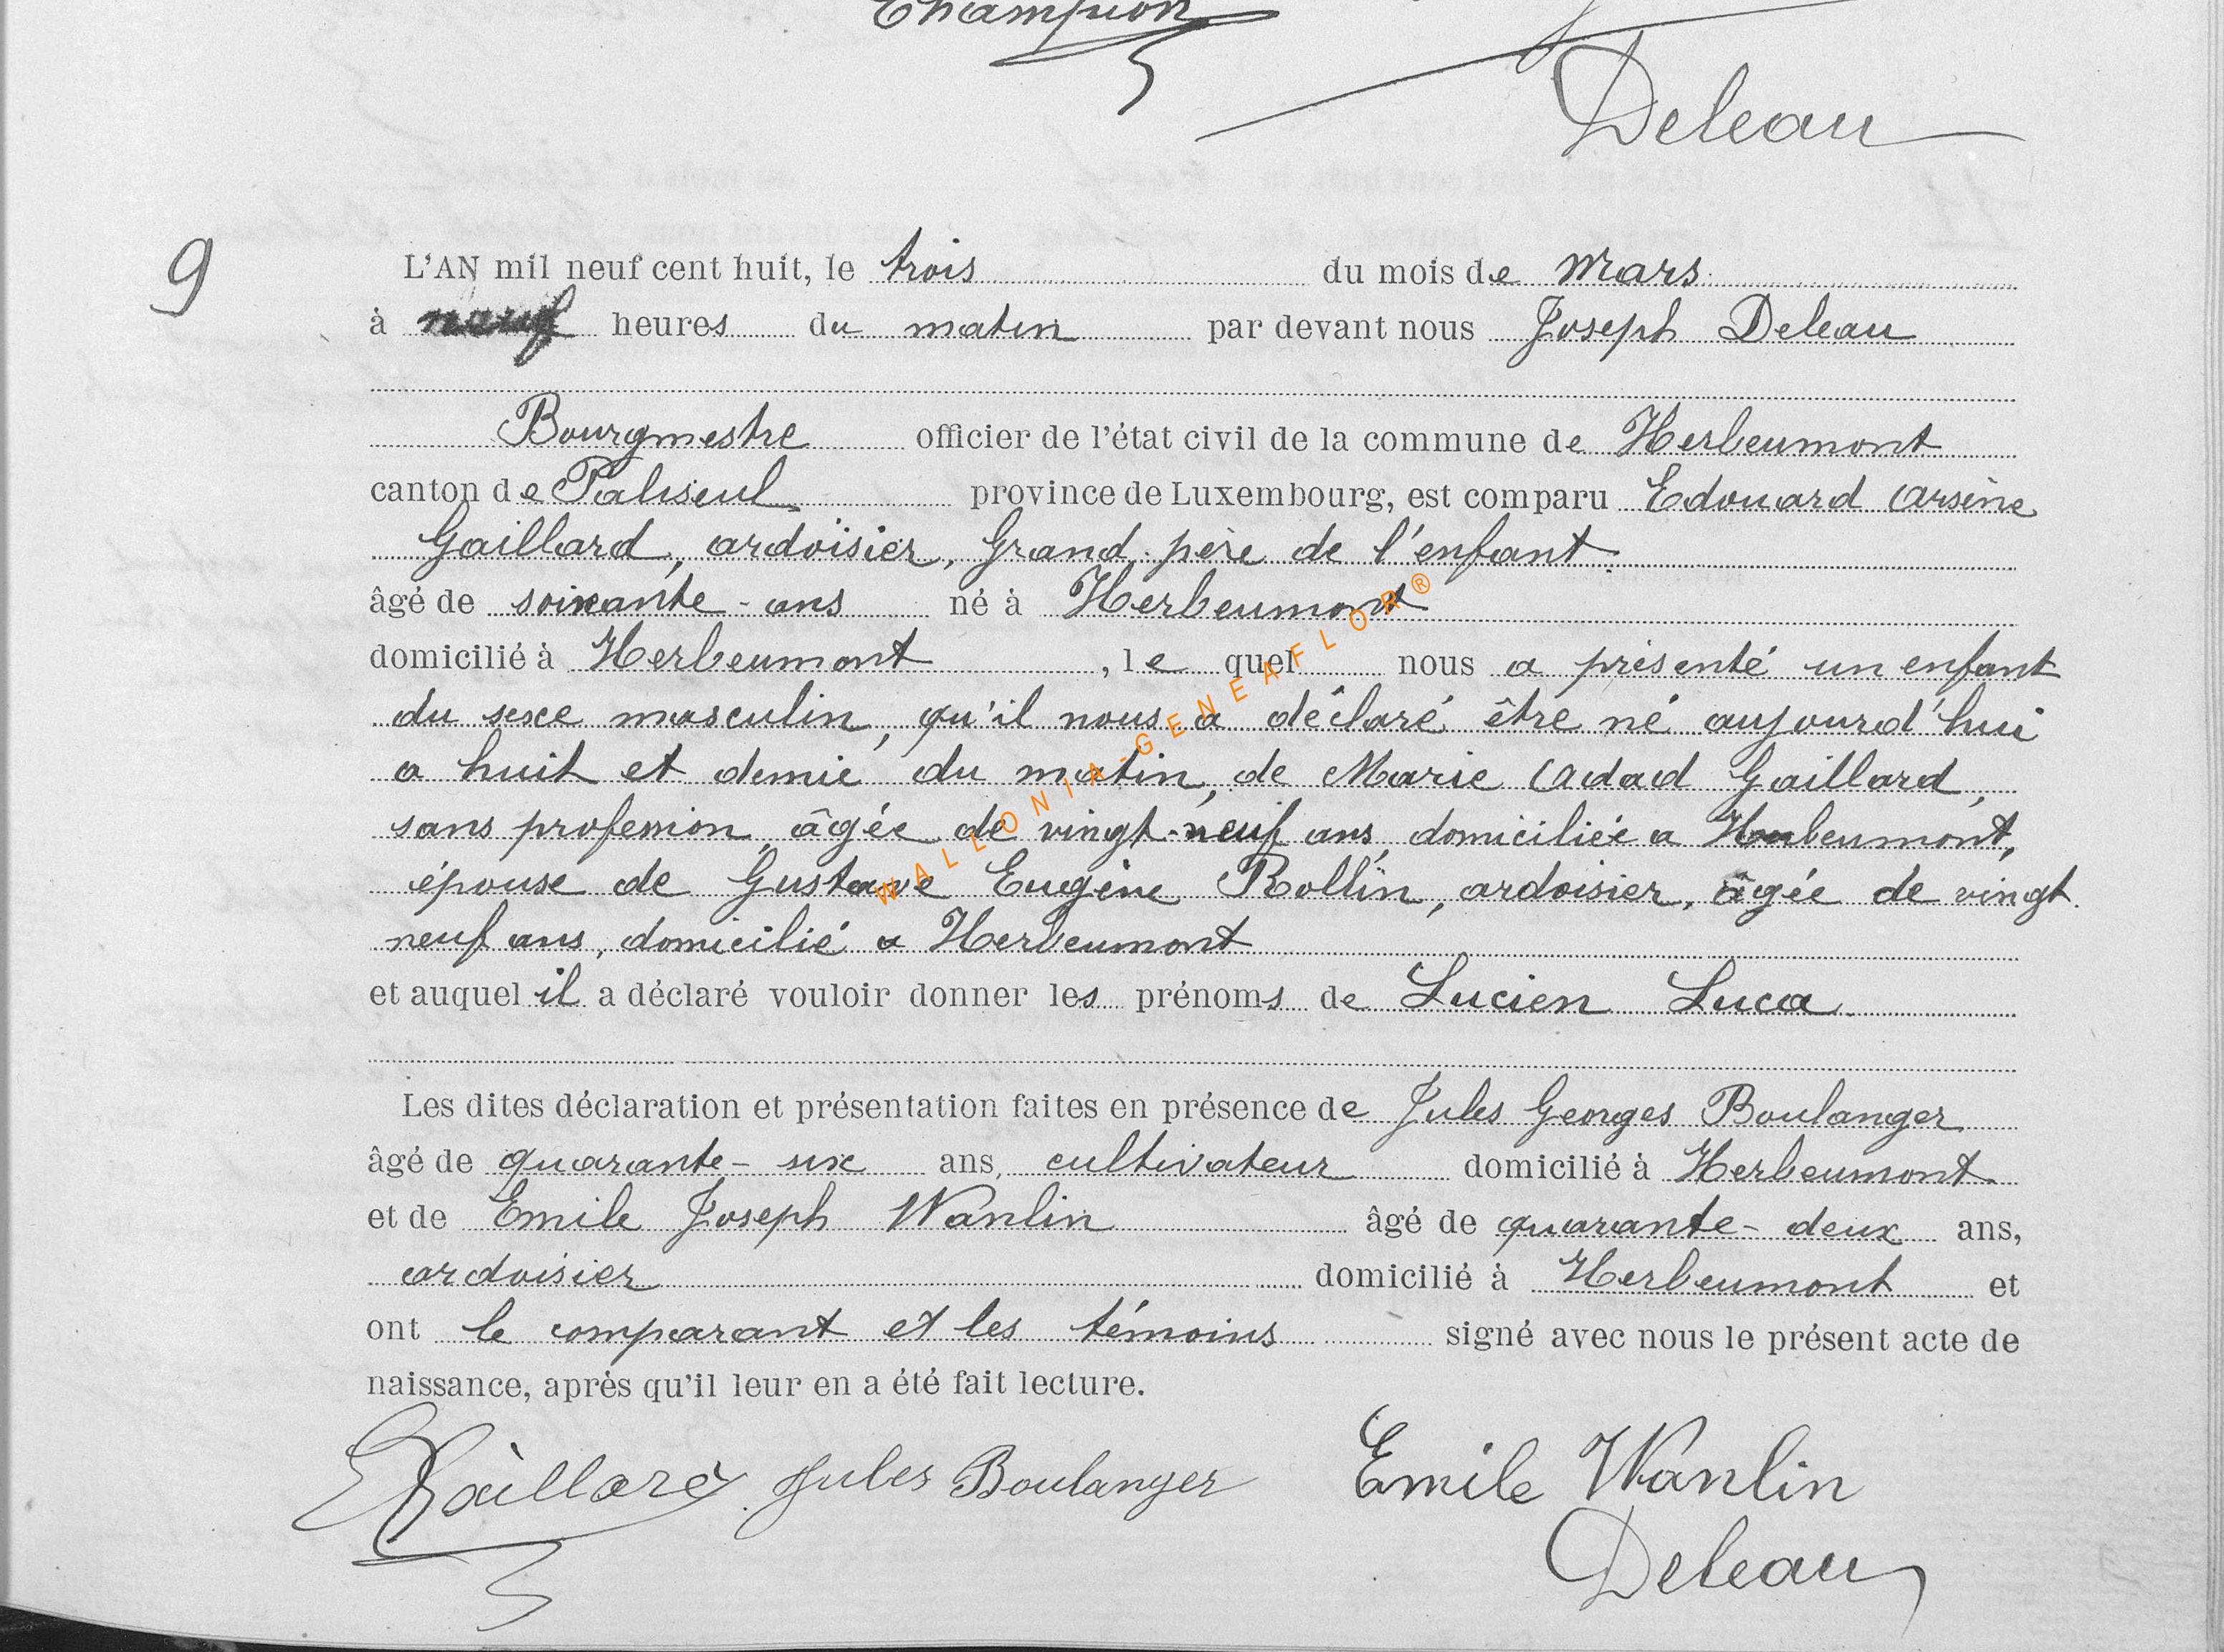 Champion
Deleau
9
L'AN mil neuf cent huit, le trois du mois de Mars
à neuf heures du matin par devant nous Joseph Deleau
Bourgmestre officier de l'état civil de la commune de Herbeumont
canton de Paliseul province de Luxembourg, est comparu Edouard Arsène
Gaillard, ardoisier, Grand-père de l'enfant
âgé de soixante-ans né à Herbeumont
domicilié à Herbeumont, lequel nous a présenté un enfant
du sexe masculin, qu'il nous a déclaré être né aujourd'hui
a huit et demie du matin, de Marie Adad Gaillard,
sans profession, âgée de vingt-neuf ans, domiciliée a Herbeumont,
épouse de Gustave Eugène Rollin, ardoisier, âgée de vingt
neuf ans, domicilié a Herbeumont
et auquel il a déclaré vouloir donner les prénoms de Lucien Luca
Les dites déclaration et présentation faites en présence de Jules Georges Boulanger
âgé de quarante-six ans, cultivateur domicilié à Herbeumont
et de Emile Joseph Wanlin âgé de quarante-deux ans,
ardoisier domicilié à Herbeumont et
ont le comparant et les témoins signé avec nous le présent acte de
naissance, après qu'il leur en a été fait lecture.
EGaillard Jules Boulanger Emile Wanlin
Deleau
WALLONIA-GENEAFLOR®